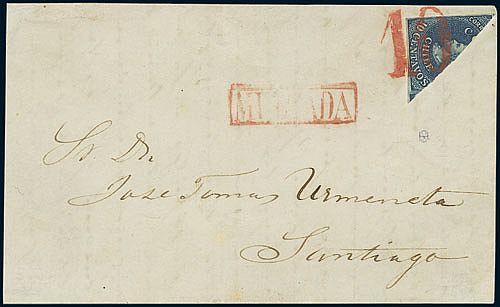 10
CORREOS
CHILE
10 CENTAVOS
MULTADA
Sr. Dn.
Jose Tomas Urmeneta
Santiago